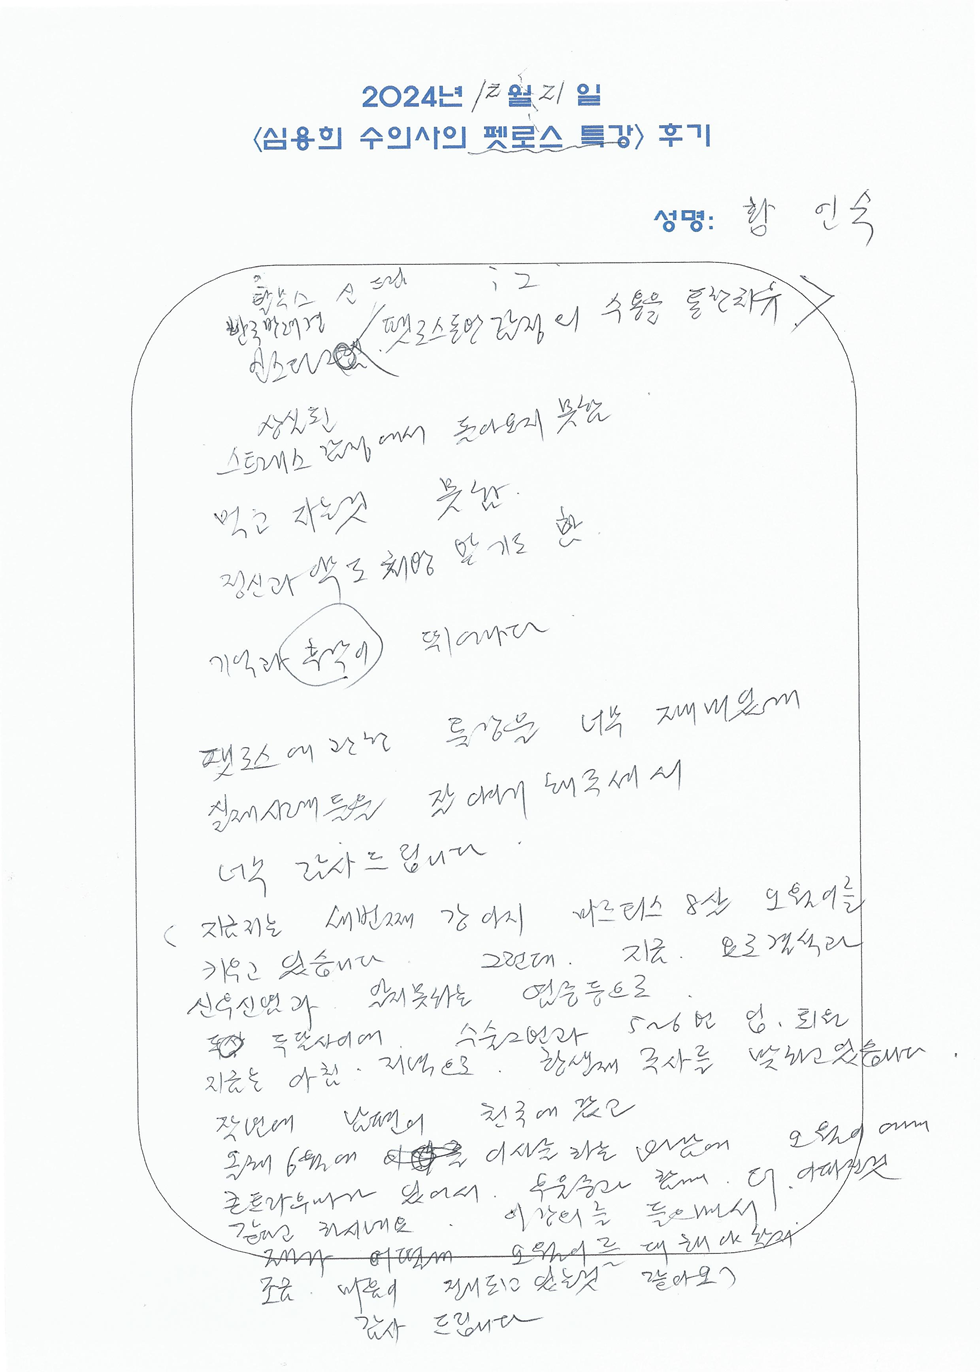 2024년 12월 21일
<심용희 수의사의 펫로스 특강> 후기
성명: 함 인숙
펫로스 증후군
반려
<펫로스 동안 감정의 수용을 통한 치유>
상실된
스트레스 감정에서 돌아오지 못함
먹고 자는것 못함.
정신과 약도 처방 받기도 함.
기억과 후각이 뛰어나다
펫로스에 관한 특강을 너무 재미있게
실제사례들을 잘 이야기 해주셔서
너무 감사드립니다.
(지금저는 세번째 강아지 마르티스 8살 오월이를
키우고 있습니다. 그런데. 지금. 요로결석과
신우신염과 염증등으로.
두달사이에. 수술2번과 5~6번 입.퇴원
지금은 아침.저녁으로. 항생제 주사를 맞하고 있습니다.
작년에 남편이 천국에 갔고
올해 6월에 이사를 하는 오월이에게
트라우마가 있어서. 우울증과 함께. 더.
하시네요. 이 강의를 들으면서
제가 어떻게 오월이를 대해야 할지
조금. 마음이 정리되고 있는것 같아요)
감사 드립니다